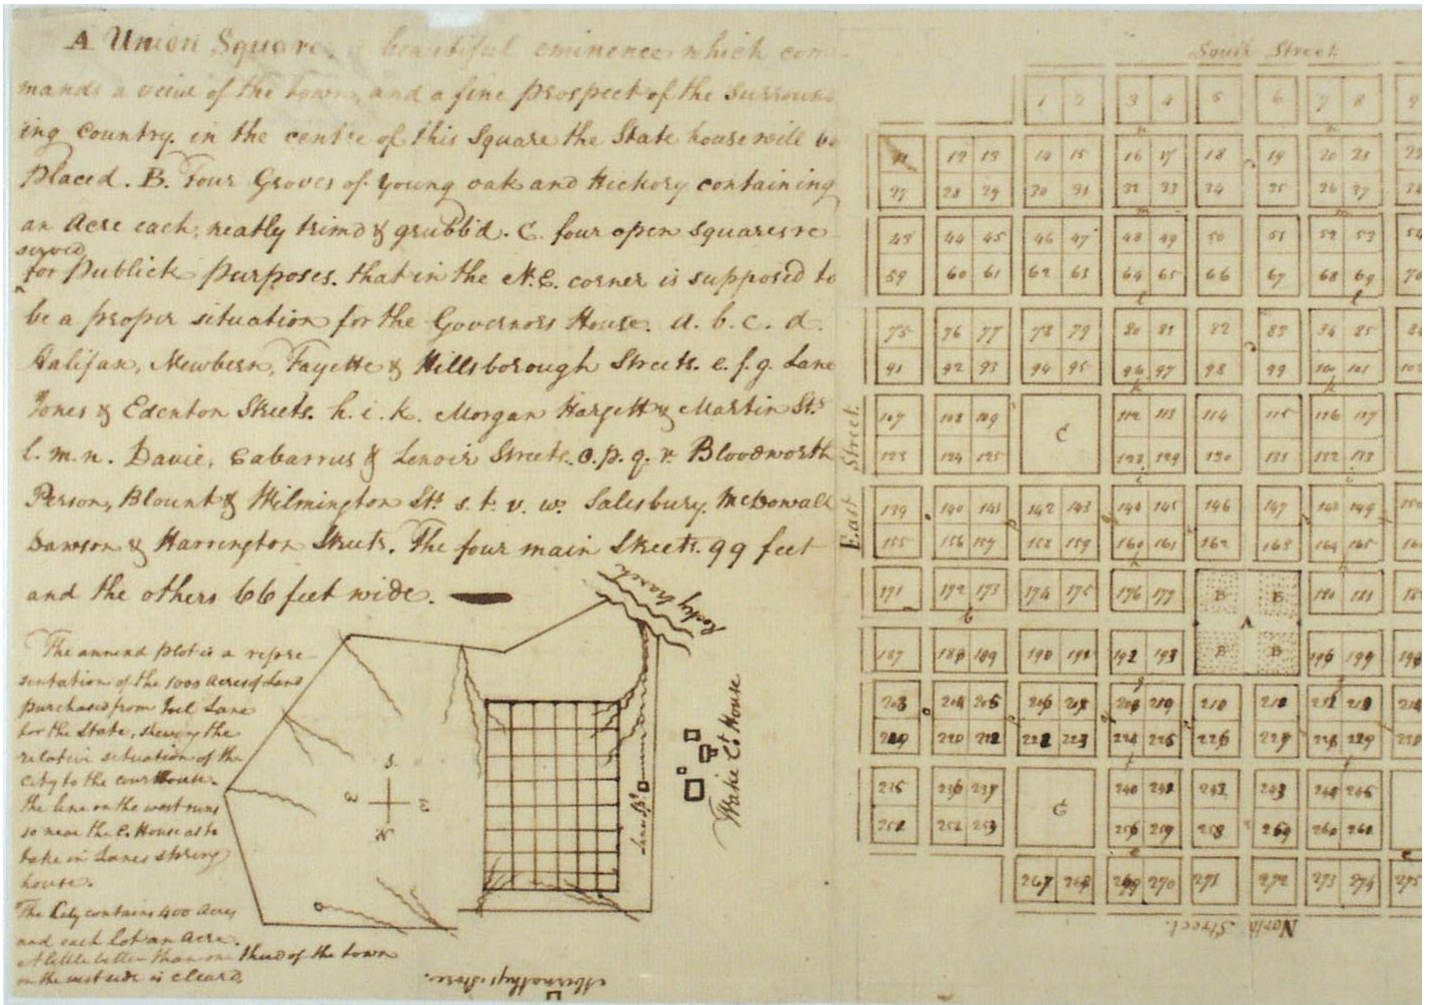 A Union Square, a beautiful eminence which com-
mands a veiw of the town, and a fine prospect of the surround
ing Country. in the centre of this Square the State house will be
placed. B. Four Groves of young oak and Hickory containing
an Acre each, neatly trim'd & grubb'd. C. four open squares re-
served
for Publick Purposes. that in the N.E. corner is supposed to
be a proper situation for the Governors House. a. b. c. d.
Halifax, Newbern, Fayette & Hillsborough Streets. e. f. g. Lane
Jones & Edenton Streets. h. i. k. Morgan Hargett & Martin Sts
l. m. n. Davie, Cabarrus & Lenoir Streets. o. p. q. r. Bloodworth
Person, Blount & Wilmington Sts s. t. v. w. Salesbury, McDowall
Dawson & Harrington Streets. The four main Streets. 99 feet
and the others 66 feet wide.
The annexd plot is a repre-
sentation of the 1000 acres of Land
purchased from Joel Lane
for the State, shewg the
relative situation of the
City to the courthouse.
the line on the west runs
so near the C. House as to
take in Lanes spring
house.
The City contains 400 Acres
and each lot an Acre.
A little better than one third of the town
on the west side is cleard.
Rocky branch
S.
N
Lanes Sp.
Wake Ct House
Abernathys store.
South Street
East Street.
1 2 3 4 5 6 7 8 9
11 12 13 14 15 16 17 18 19 20 21 22
27 28 29 30 31 32 33 34 35 36 37
43 44 45 46 47 48 49 50 51 52 53 54
59 60 61 62 63 64 65 66 67 68 69 70
75 76 77 78 79 80 81 82 83 84 85
91 92 93 94 95 96 97 98 99 100 101
107 108 109 C 112 113 114 115 116 117
123 124 125 128 129 130 131 132 133
139 140 141 142 143 144 145 146 147 148 149 150
155 156 157 158 159 160 161 162 163 164 165
171 172 173 174 175 176 177 B B 180 181
A
187 188 189 190 191 192 193 B B 196 197 198
203 204 205 206 207 208 209 210 211 212 213 214
219 220 221 222 223 224 225 226 227 228 229 230
235 236 237 C 240 241 242 243 244 245
251 252 253 256 257 258 259 260 261
267 268 269 270 271 272 273 274 275
North Street.